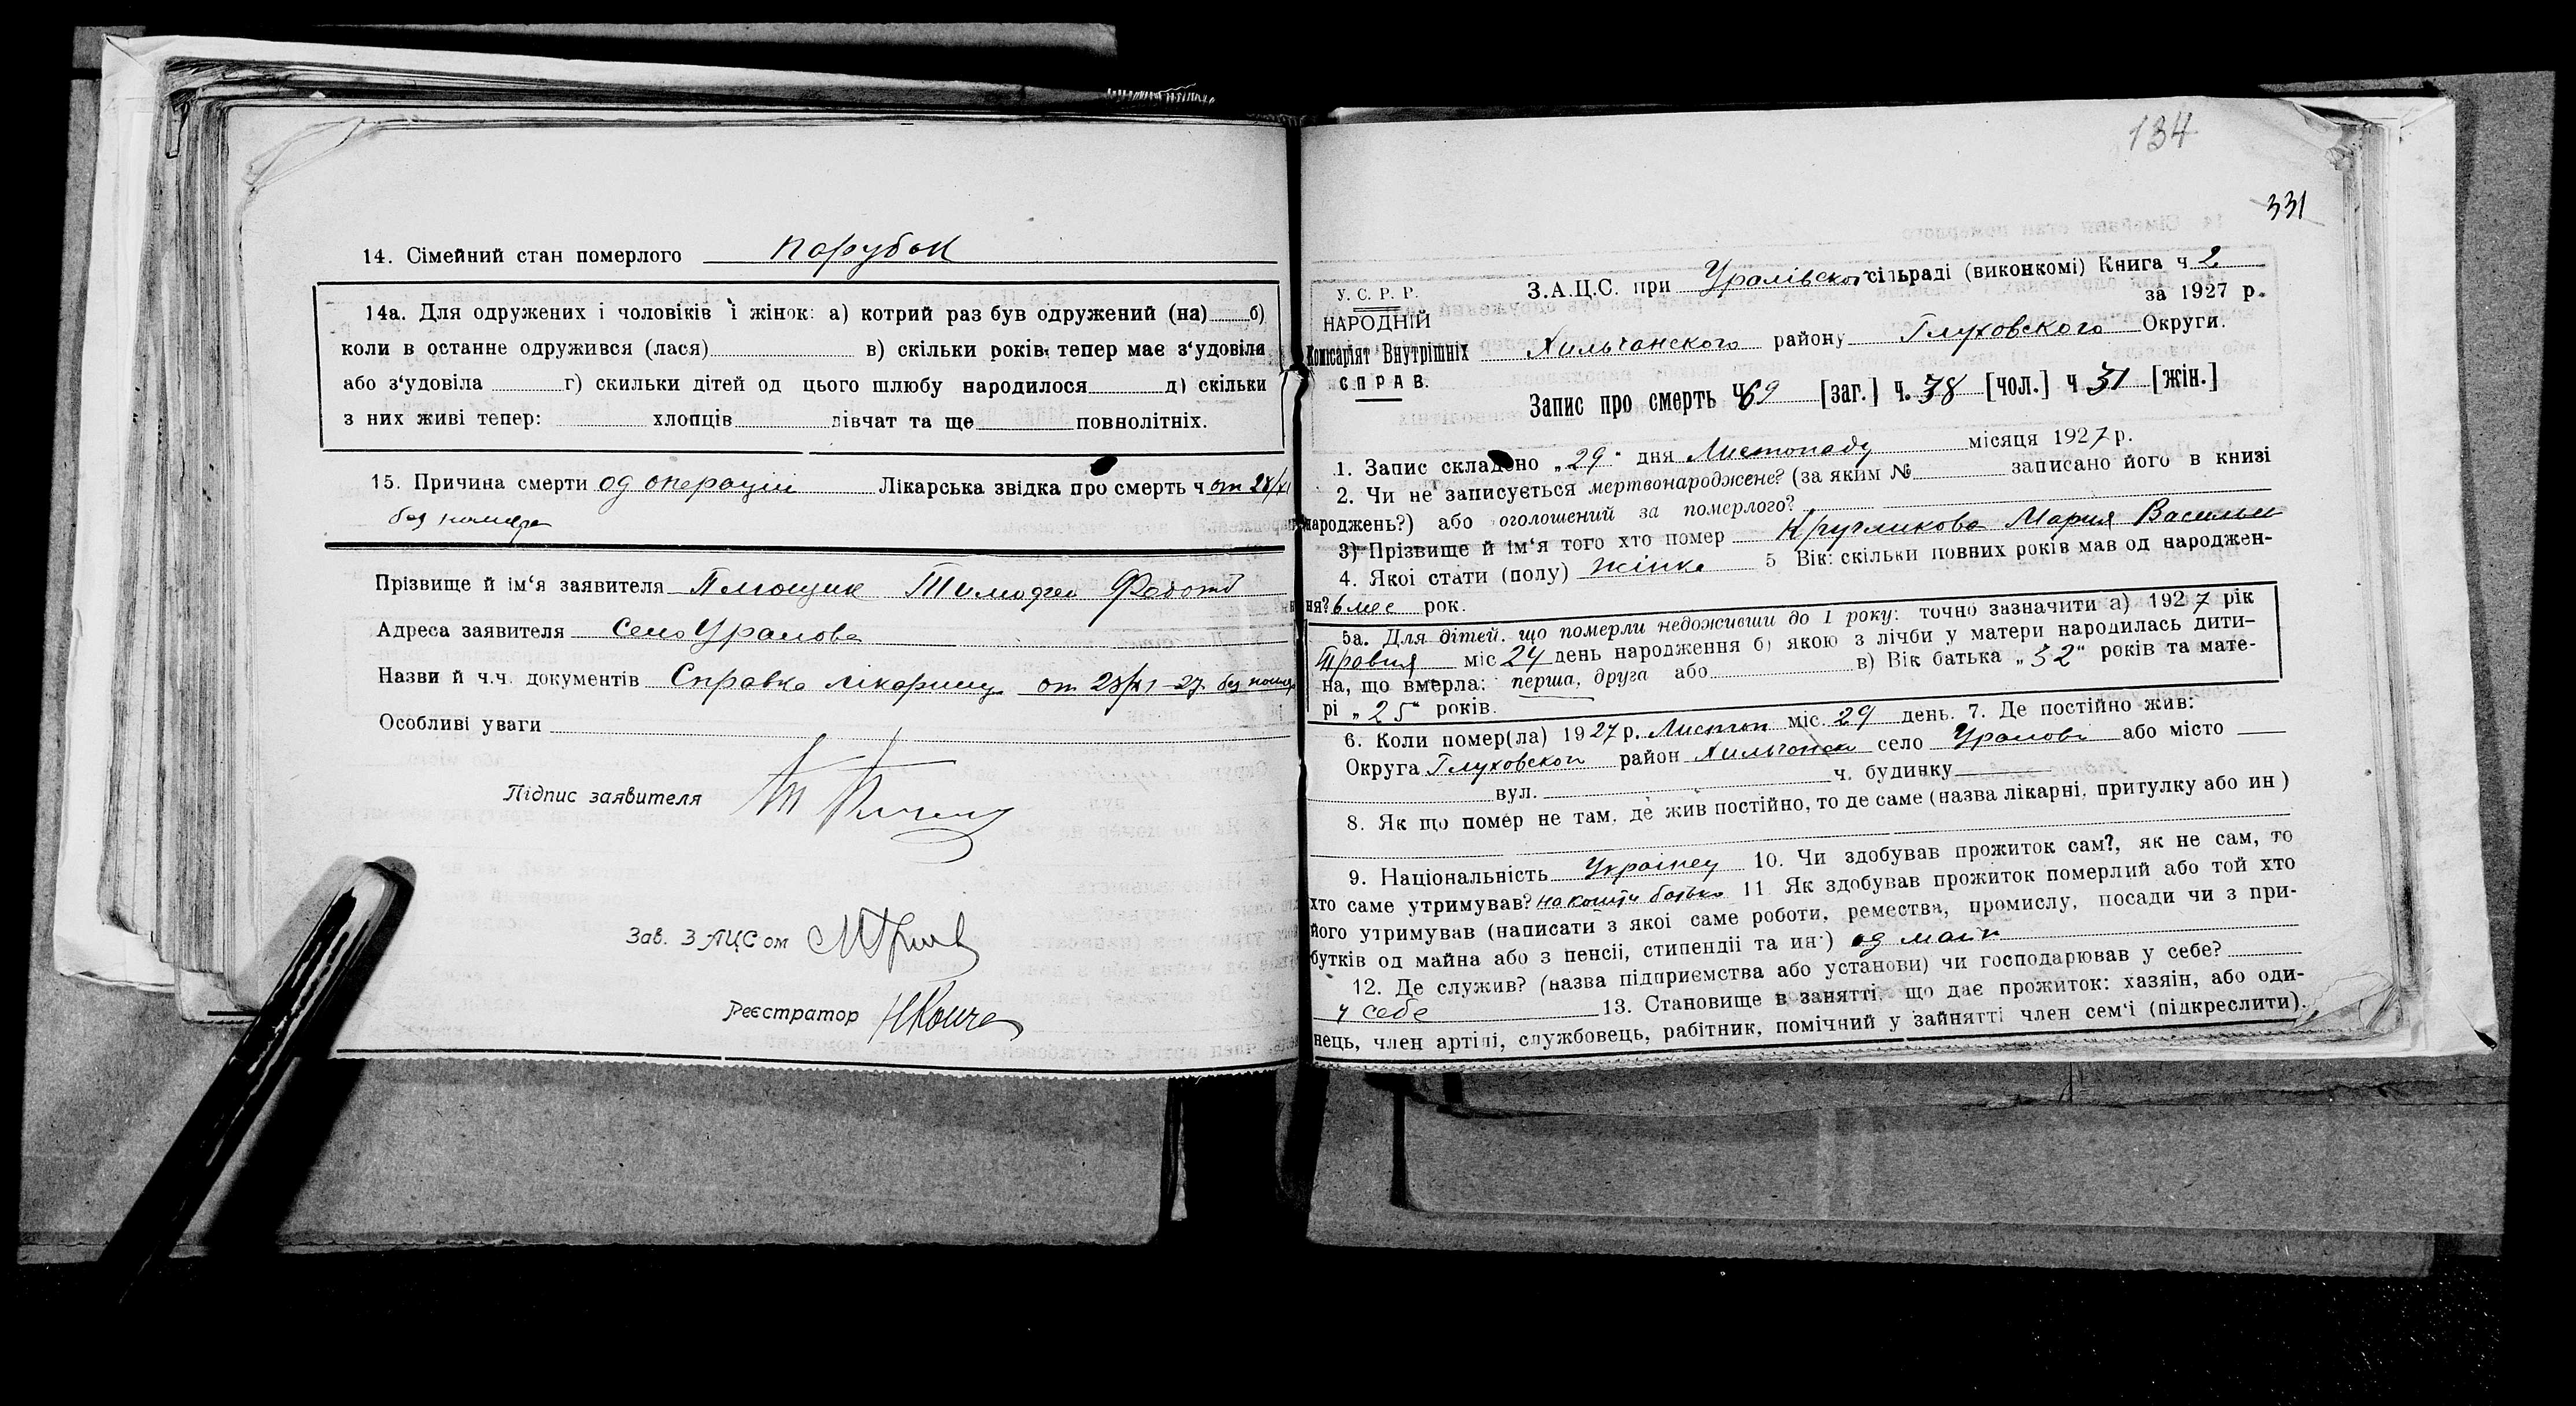 14. Сімейний стан померлого парубок
14а. Для одружених і чоловіків і жінок: а) котрий раз був одружений (на) б)
коли в останне одружився (лася) в) скільки років тепер має з‘удовіла
або з‘удовіла г) скильки дітей од цього шлюбу народилося д) скільки
з них живі тепер: хлопців дівчат та ще повнолітніх.
15. Причина смерти од операции Лікарська звідка про смерть ч от 28/XI
без номера
Прізвище й ім‘я заявителя Плющик Тимофей Федот
Адреса заявителя село Уралова
Назви й ч.ч. документів Справка лікарниц от 28/XI-27 без номер
Особливі уваги
Підпис заявителя
Зав. ЗАЦСом
Реєстратор
134
331
У. С. Р. Р.
НАРОДНІЙ
Комісаріят Внутрішніх
СПРАВ.
З.А.Ц.С. при Уралівской сільраді (виконкомі) Книга ч 2
за 1927 р.
Хильчанского району Глуховского Округи.
Запис про смерть ч 69 [заг.] ч. 38 [чол.] ч 31 [жін.]
1. Запис складено „29“ дня Листопаду місяця 1927 р.
2. Чи не записується мертвонароджене? (за яким № записано його в книзі
народжень?) або оголошений за померлого?
3) Прізвище й ім‘я того хто помер Кругликова Мария Васильи
4. Якоі стати (полу) жінка 5 Вік: скільки повних років мав од народжен-
ня? 6 мес рок.
5а. Для дітей, що померли недоживши до 1 року: точно зазначити а) 1927 рік
Травня міс 24 день народження б) якою з лічби у матери народилась дити-
на, що вмерла: перша, друга або в) Вік батька „32“ років та мате-
рі „25“ років.
6. Коли помер(ла) 1927 р. Листоп міс. 29 день. 7. Де постійно жив:
Округа Глуховской район Хильчанск село Уралові або місто
вул. ч. будинку
8. Як що помер не там, де жив постійно, то де саме (назва лікарні, притулку або ин)
9. Національність Украінец 10. Чи здобував прожиток сам?, як не сам, то
хто саме утримував? на кошти батька 11 Як здобував прожиток померлий або той хто
його утримував (написати з якоі саме роботи, ремества, промислу, посади чи з при-
бутків од майна або з пенсіі, стипендіі та ин) од майн
12. Де служив? (назва підприємства або установи) чи господарював у себе?
у себе 13. Становище в занятті, що дає прожиток: хазяін, або оди-
нець, член артілі, службовець, рабітник, помічний у зайнятті член сем‘і (підкреслити).